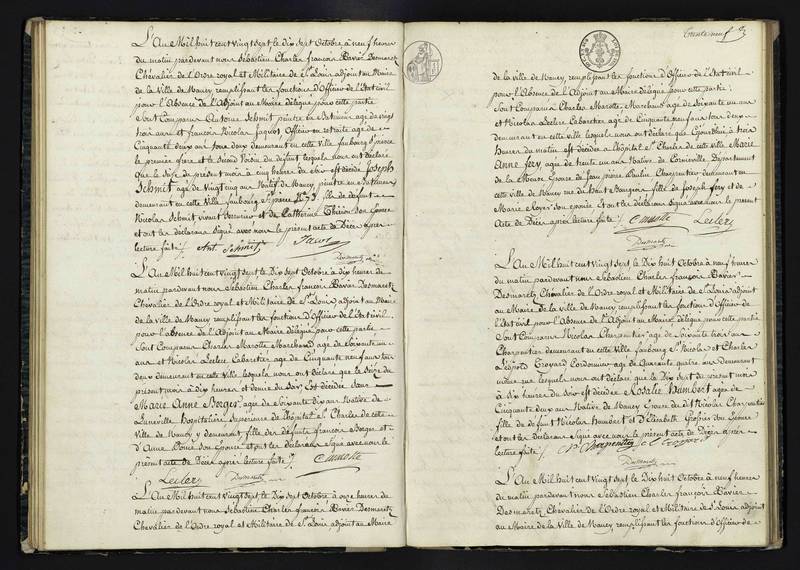 L'An Mil huit cent vingt sept le Dix sept Octobre à neuf heures
du matin pardevant nous Sébastien Charles françois Xavier Desmaretz
Chevalier de l'Ordre royal et Militaire de St Louis adjoint au Maire
de la Ville de Nancy remplissant les fonctions d'Officier de l'Etat civil
pour l'Absence de l'Adjoint au Maire délégué pour cette partie
Sont Comparus Antoine Schmit peintre en Batimens agé de vingt
trois ans et francois Nicolas Jaquot Officier en retraite agé de
Cinquante deux ans tous deux demeurant en cette Ville faubourg St pierre
le premier frere et le Second Voisin du défunt lesquels nous ont déclaré
que le Seize du présent mois à cinq heures du soir est décédé Joseph
Schmit agé de Vingt cinq ans Natif de Nancy peintre en Batimens
demeurant en cette Ville faubourg St pierre fils de défunt
Nicolas Schmit vivant et de Catherine son Epouse
et ont les déclarans Signé avec nous le présent acte de Décès après
lecture faite /. Ant. Schmit
Desmaretz
L'An Mil huit cent Vingt sept le Dix sept Octobre à dix heures du
matin pardevant nous Sébastien Charles françois Xavier Desmaretz
Chevalier de l'Ordre royal et Militaire de St Louis, adjoint au Maire
de la ville de Nancy remplissant les fonctions d'Officier de l'Etat civil
pour l'absence de l'Adjoint au Maire délégué pour cette partie
Sont Comparus Charles Marotte Marchand agé de Soixante un
ans et Nicolas Leclerc Cabaretier agé de Cinquante Neuf ans tous
deux demeurant en cette Ville lesquels nous ont déclaré que le Seize du
présent mois à dix heures et demie du Soir Est décédée Sœur
Marie Anne Borges agée de Soixante dix ans Native de
Luneville hospitalière Supérieure de l'hôpital St Charles de cette
Ville de Nancy y demeurant fille des défunts francois Borges et
d'Anne son Epouse et ont les déclarans Signé avec nous le
présent acte de Décès après lecture faite /. C Marotte
Leclerc Desmaretz
L'An Mil huit cent Vingt sept le Dix sept Octobre à onze heures du
matin pardevant nous Sébastien Charles françois Xavier Desmaretz
Chevalier de l'Ordre royal et Militaire de St Louis adjoint au Maire
trente neuf
de la ville de Nancy, remplissant les fonctions d'Officier de l'Etat civil
pour l'absence de l'Adjoint au Maire délégué pour cette partie
Sont Comparus Charles Marotte, Marchand agé de Soixante un ans
et Nicolas Leclerc Cabaretier agé de Cinquante Neuf ans tous deux
demeurant en cette Ville lesquels nous ont déclaré que aujourd'hui à trois
heures du matin est décédée à l'hôpital St Charles de cette ville Marie
Anne fery agée de trente un ans Native de Luneville Département
de la Meurthe Epouse de Jean pierre Charpentier demeurant en
cette ville de Nancy rue du haut Bourgeois fille de Joseph fery et de
Marie Royer son epouse et ont les déclarans Signé avec nous le présent
Acte de Décès après lecture faite /. C Marotte Leclerc
Desmaretz
L'An Mil huit cent Vingt sept le Dix huit Octobre à neuf heures
du matin pardevant nous Sébastien Charles françois Xavier
Desmaretz Chevalier de l'Ordre royal et Militaire de St Louis adjoint
au Maire de la Ville de Nancy remplissant les fonctions d'Officier de
l'Etat civil pour l'absence de l'Adjoint au Maire délégué pour cette partie
Sont Comparus Nicolas Charpentier agé de Soixante trois ans
Charpentier demeurant en cette Ville faubourg St Nicolas et Charles
Léopold Troyard Cordonnier agé de Quarante quatre ans demeurant
même rue lesquels nous ont déclaré que le Dix Sept du présent mois
à dix heures du Soir est décédée Rosalie Humbert agée de
Cinquante deux ans Native de Nancy Epouse du dit Nicolas Charpentier
fille de défunt Nicolas Humbert et d'Elisabeth son Epouse
et ont les déclarans Signé avec nous le présent acte de Décès après
lecture faite /. N Charpentier C L Troyard
Desmaretz
L'An Mil huit cent Vingt sept le Dix huit Octobre à neuf heures
du matin pardevant nous Sébastien Charles françois Xavier
Desmaretz Chevalier de l'Ordre royal et Militaire de St Louis, adjoint
au Maire de la Ville de Nancy, remplissant les fonctions d'Officier de